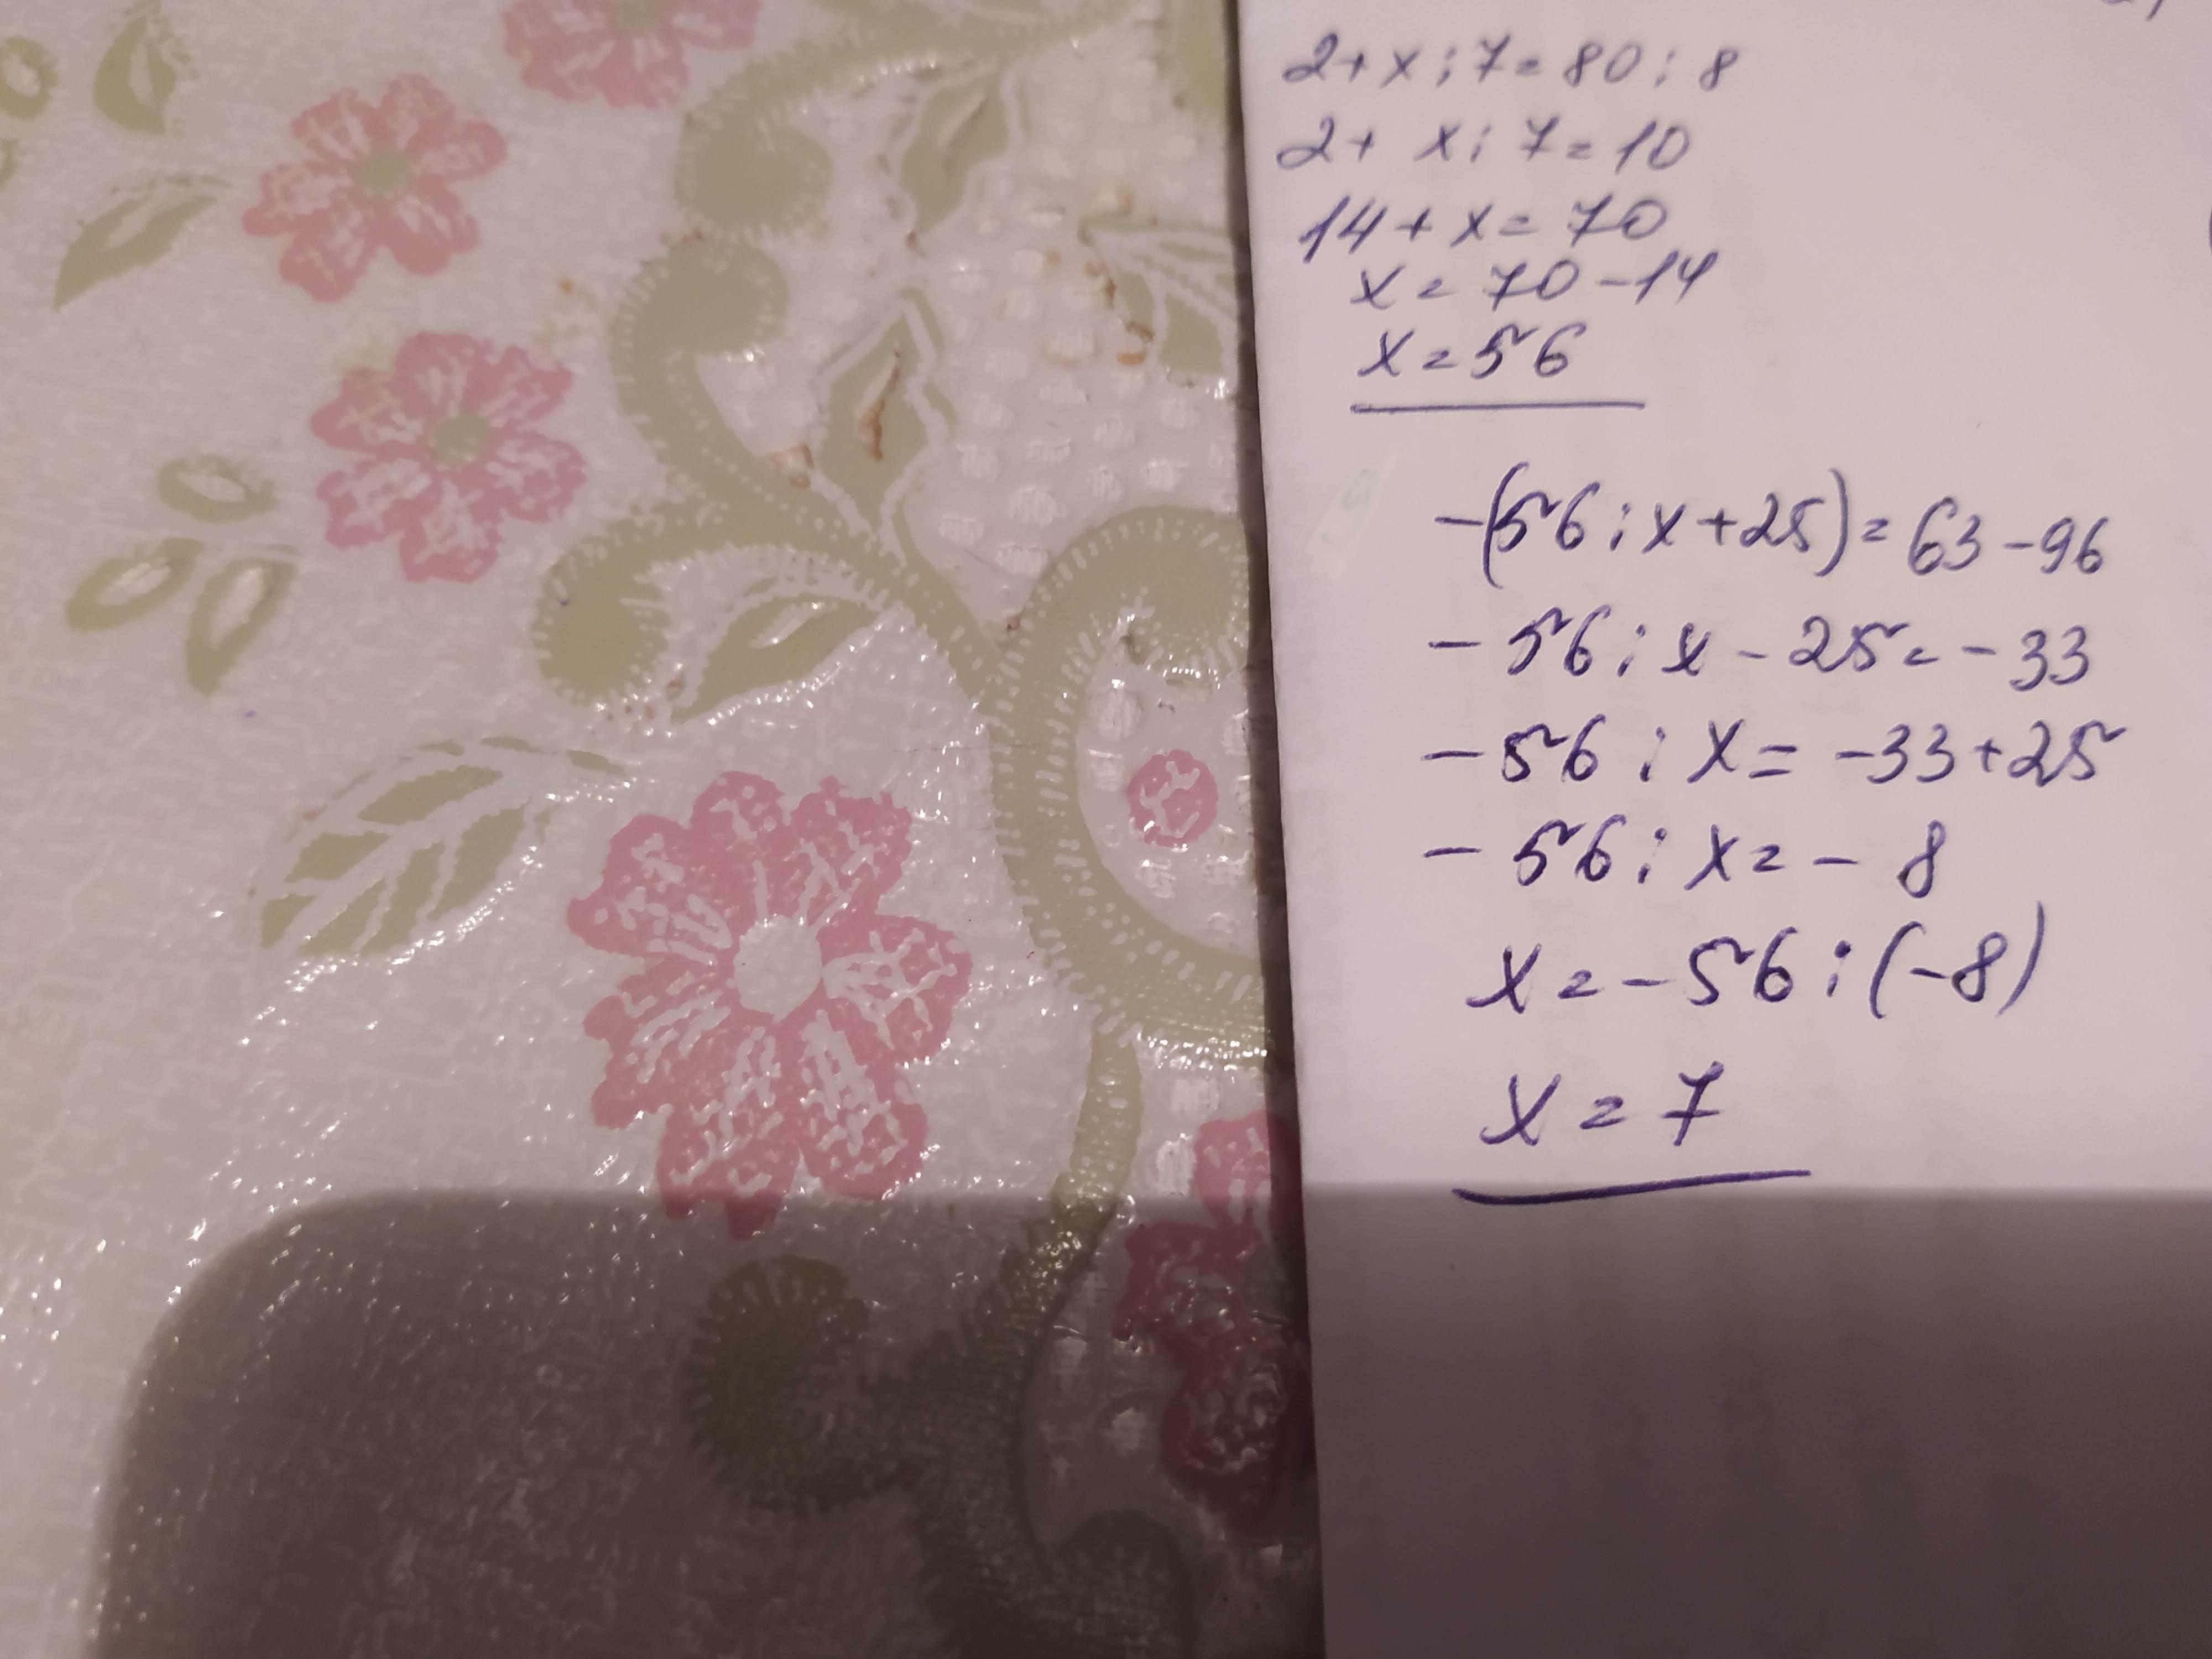 2+x:7=80:8
2+ x:7=10
14+x=70
x=70-14
x=56
-(56:x+25)=63-96
-56:x-25=-33
-56:x=-33+25
-56:x=-8
x=-56:(-8)
x=7